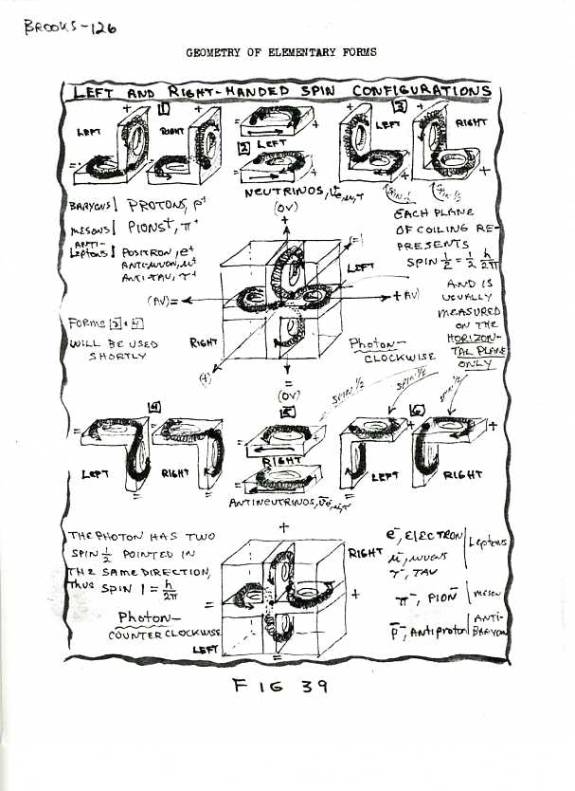 BROOKS-126
GEOMETRY OF ELEMENTARY FORMS
LEFT AND RIGHT-HANDED SPIN CONFIGURATIONS
1
LEFT
RIGHT
2 LEFT
NEUTRINOS,
(OV)
3
LEFT
RIGHT
SPIN-1/2
SPIN-1/2
BARYONS | PROTONS, P+
MESONS | PIONS+, π+
ANTI-
LEPTONS | POSITRON, e+
ANTIMUON, μ+
ANTI-TAV, τ+
EACH PLANE
OF COILING RE-
PRESENTS
SPIN 1/2 = 1/2 h/2π
AND IS
USUALLY
MEASURED
ON THE
HORIZON-
TAL PLANE
ONLY
+
LEFT
(AV)=
+AV)
FORMS 3 + 4
WILL BE USED
SHORTLY
RIGHT
PHOTON-
CLOCKWISE
=
(OV)
SPIN 1/2
SPIN-1/2
SPIN 1/2
4
LEFT
RIGHT
5
RIGHT
ANTINEUTRINOS,
6
LEFT
RIGHT
THE PHOTON HAS TWO
SPIN 1/2 POINTED IN
THE SAME DIRECTION,
THUS SPIN 1 = h/2π
PHOTON-
COUNTER CLOCKWISE
+
RIGHT
=
+
LEFT
=
e-, ELECTRON
μ-, MUONS
τ-, TAV
Leptons
π-, PION-
MESON
P-, Antiproton
ANTI-
BARYON
FIG 39